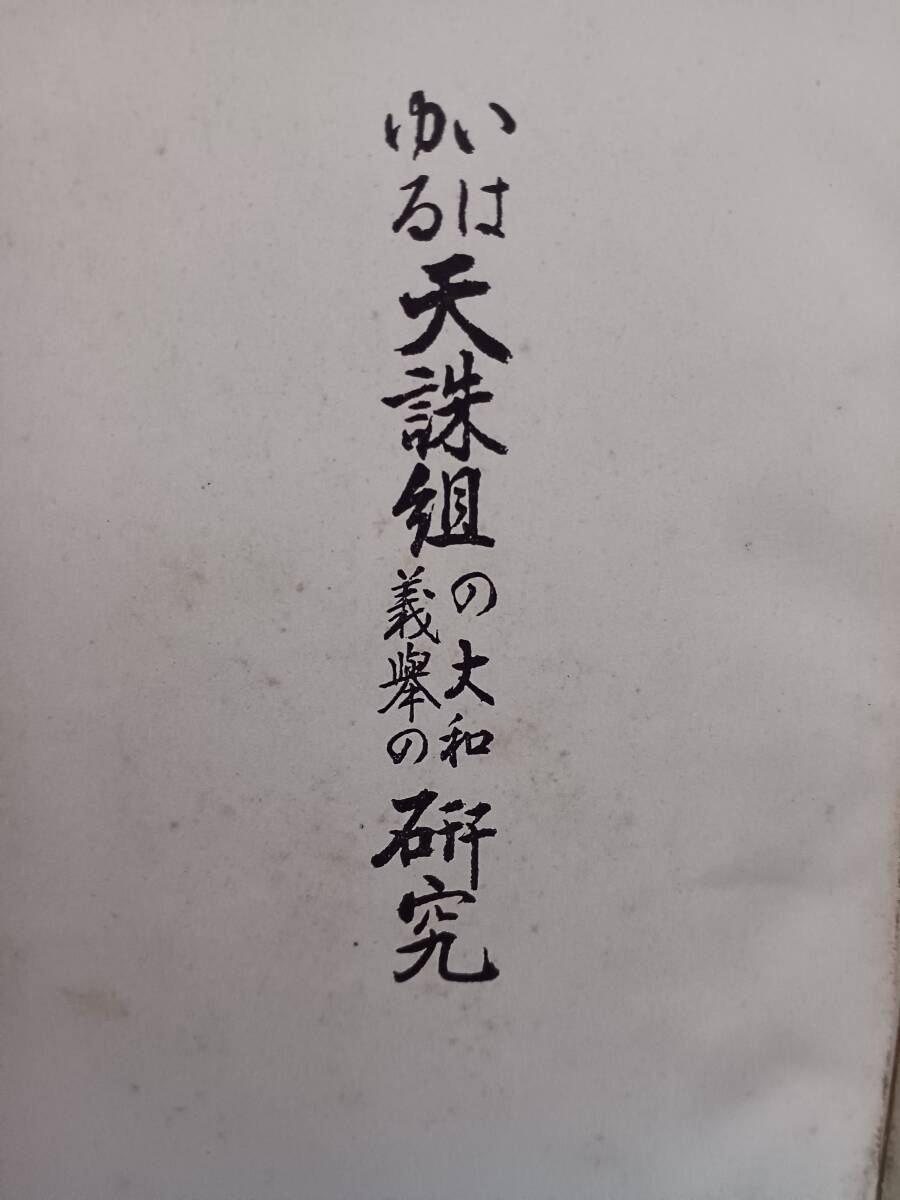 いはゆる天誅組の大和義擧の研究